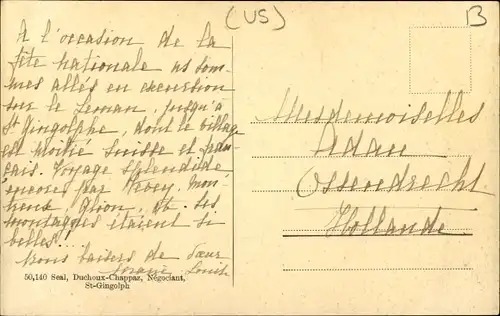 (US)
B
A l'occasion de la
fête nationale ns som-
mes allés en excursion
sur le Leman, jusqu'à
St Gingolphe, dont le village
est moitié Suisse et fran-
çais. Voyage splendide
encore par Vevey, Mon-
treux, Glion, etc. Les
montagnes étaient si
belles!..
bons baisers de Sœur
Louise
50,140 Seal, Duchoux-Chappaz, Négociant,
St-Gingolph
Mesdemoiselles
Adan
Ossendrecht
Hollande.